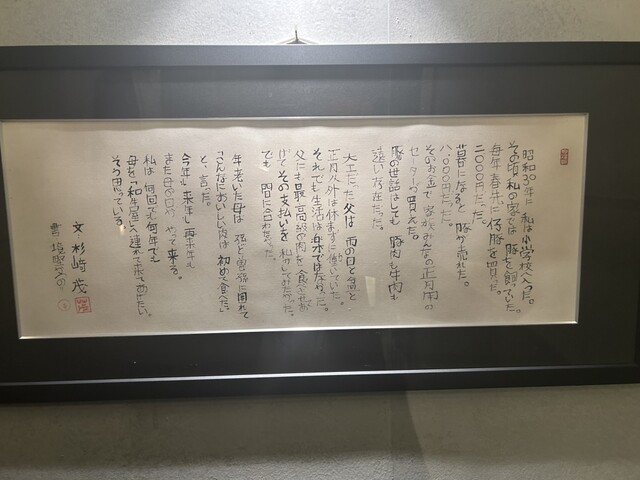 昭和30年に 私は小学校へ入った。
その頃 私の家では 豚を飼っていた。
毎年 春先に 仔豚を買った。
二〇〇〇円だった。
暮になると 豚が売れた。
八、〇〇〇円だった。
そのお金で 家族みんなの正月用の
セーターが買えた。
豚の世話はしても 豚肉も牛肉も
遠い存在だった。
大工だった父は 雨の日と盆と
正月以外は休まずに働いていた。
それでも生活は 楽ではなかった。
父にも最高級の肉を 食べさせて
その支払いを 私がしてみたかった。
でも 間に合わなかった。
年老いた母は 孫たちに囲まれて
「こんなにおいしい肉は 初めて食べた」
と、言った。
今年も 来年も 再来年も
また母の日が やって来る。
私は 何回でも何年でも
母を「和牛屋」へ連れて来てあげたい。
そう思っている。
文 杉崎 茂